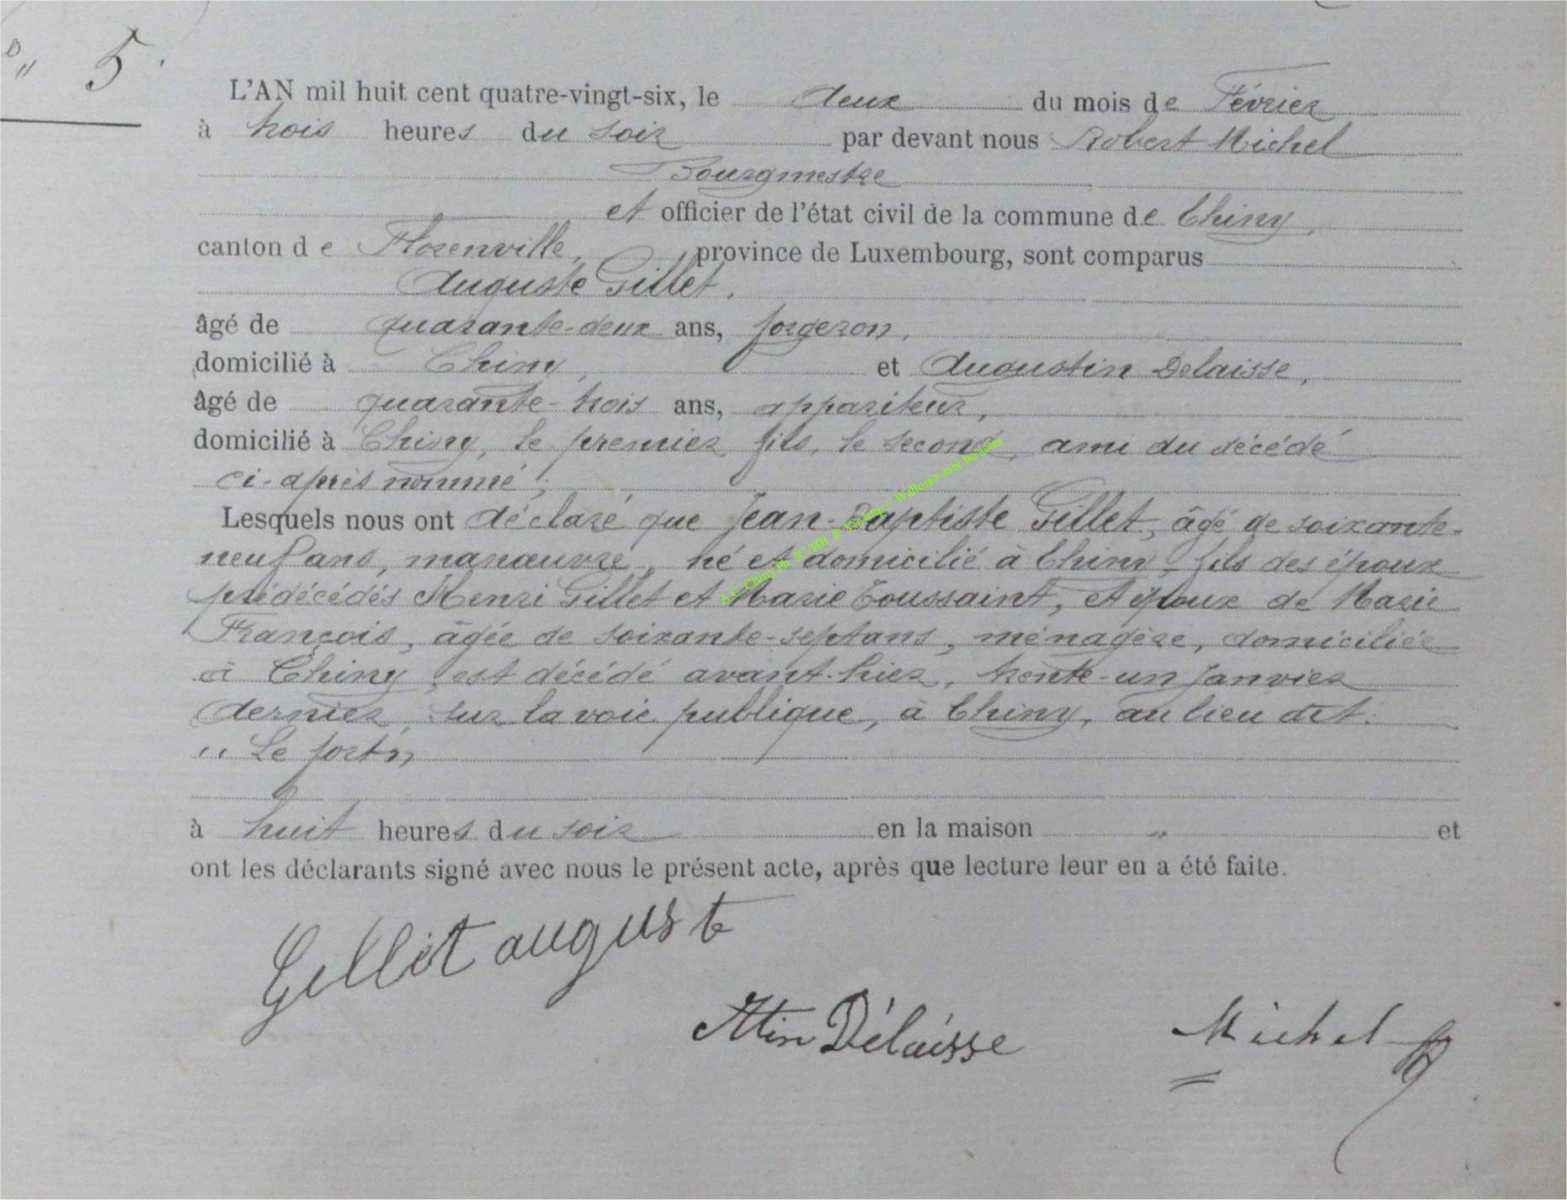 N° 5.
L'AN mil huit cent quatre-vingt-six, le deux du mois de Février
à trois heures du soir par devant nous Robert Michel
Bourgmestre
et officier de l'état civil de la commune de Chiny,
canton de Florenville, province de Luxembourg, sont comparus
Auguste Gillet,
âgé de quarante-deux ans, forgeron,
domicilié à Chiny, et Augustin Delaisse,
âgé de quarante-trois ans, appariteur,
domicilié à Chiny, le premier fils, le second, ami du décédé
ci-après nommé;
Lesquels nous ont déclaré que Jean-Baptiste Gillet, âgé de soixante-
neuf ans, manœuvre, né et domicilié à Chiny, fils des époux
prédécédés Henri Gillet et Marie Toussaint, et époux de Marie
François, âgée de soixante-sept ans, ménagère, domiciliée
à Chiny, est décédé avant-hier, trente-un janvier
dernier, sur la voie publique, à Chiny, au lieu dit:
"Le fort"
à huit heures du soir en la maison " et
ont les déclarants signé avec nous le présent acte, après que lecture leur en a été faite.
Gillet auguste
Atin Délaisse Michel R